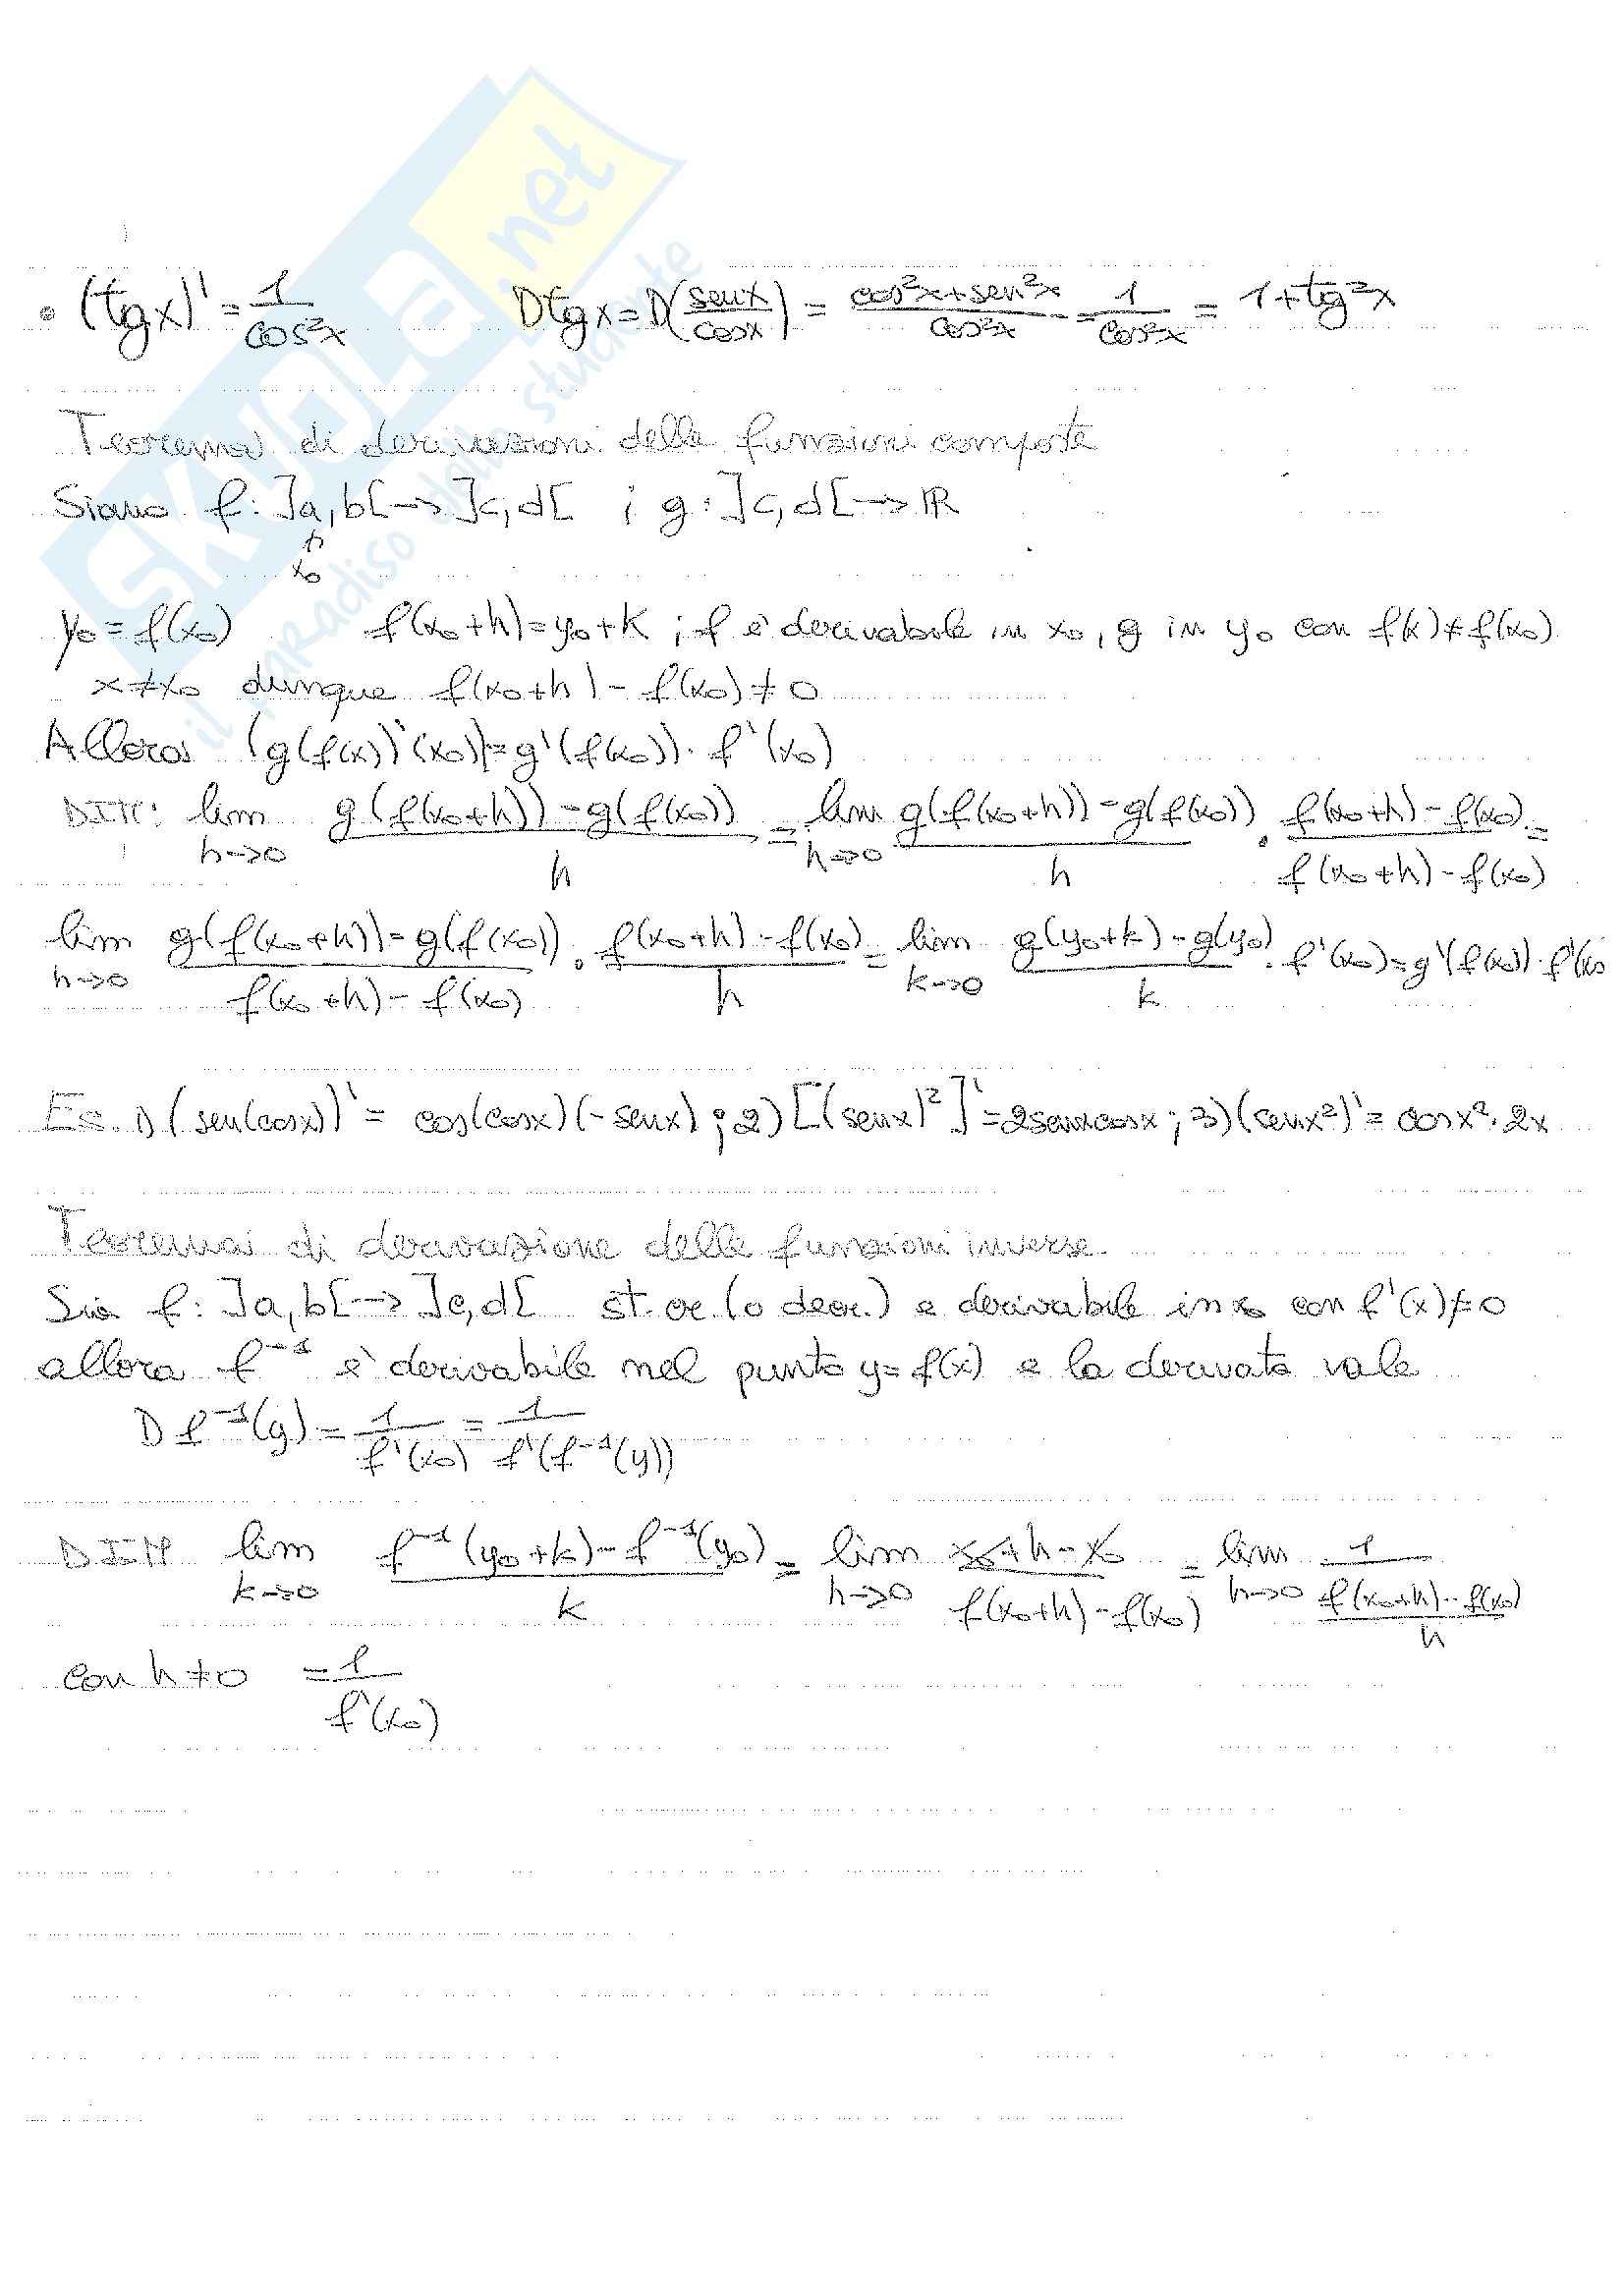 SKUOLA.net
il paradiso dello studente
• (tgx)' = 1/cos²x    Dtgx = D(senx/cosx) = (cos²x + sen²x)/cos²x = 1/cos²x = 1+tg²x
Teorema di derivazioni delle funzioni composte
Siano f: ]a,b[ → ]c,d[ ; g: ]c,d[ → ℝ
x₀
y₀ = f(x₀)    f(x₀+h) = y₀+k ; f è derivabile in x₀, g in y₀ con f(x) ≠ f(x₀)
x ≠ x₀ dunque f(x₀+h) - f(x₀) ≠ 0
Allora (g(f(x))'(x₀) = g'(f(x₀)) · f'(x₀)
DIM: lim h→0 (g(f(x₀+h)) - g(f(x₀)))/h = lim h→0 (g(f(x₀+h)) - g(f(x₀)))/h · (f(x₀+h) - f(x₀))/(f(x₀+h) - f(x₀)) =
lim h→0 (g(f(x₀+h)) - g(f(x₀)))/(f(x₀+h) - f(x₀)) · (f(x₀+h) - f(x₀))/h = lim k→0 (g(y₀+k) - g(y₀))/k · f'(x₀) = g'(f(x₀)) · f'(x₀
Es. 1) (sen(cosx))' = cos(cosx)(-senx) ; 2) [(senx)²]' = 2senxcosx ; 3) (senx²)' = cosx² · 2x
Teorema di derivazione delle funzioni inverse
Sia f: ]a,b[ → ]c,d[ st. cr. (o decr.) e derivabile in x₀ con f'(x) ≠ 0
allora f⁻¹ è derivabile nel punto y = f(x) e la derivata vale
D f⁻¹(y) = 1/f'(x₀) = 1/f'(f⁻¹(y))
DIM lim k→0 (f⁻¹(y₀+k) - f⁻¹(y₀))/k = lim h→0 (x₀+h-x₀)/(f(x₀+h) - f(x₀)) = lim h→0 1/((f(x₀+h) - f(x₀))/h)
con h ≠ 0 = 1/f'(x₀)